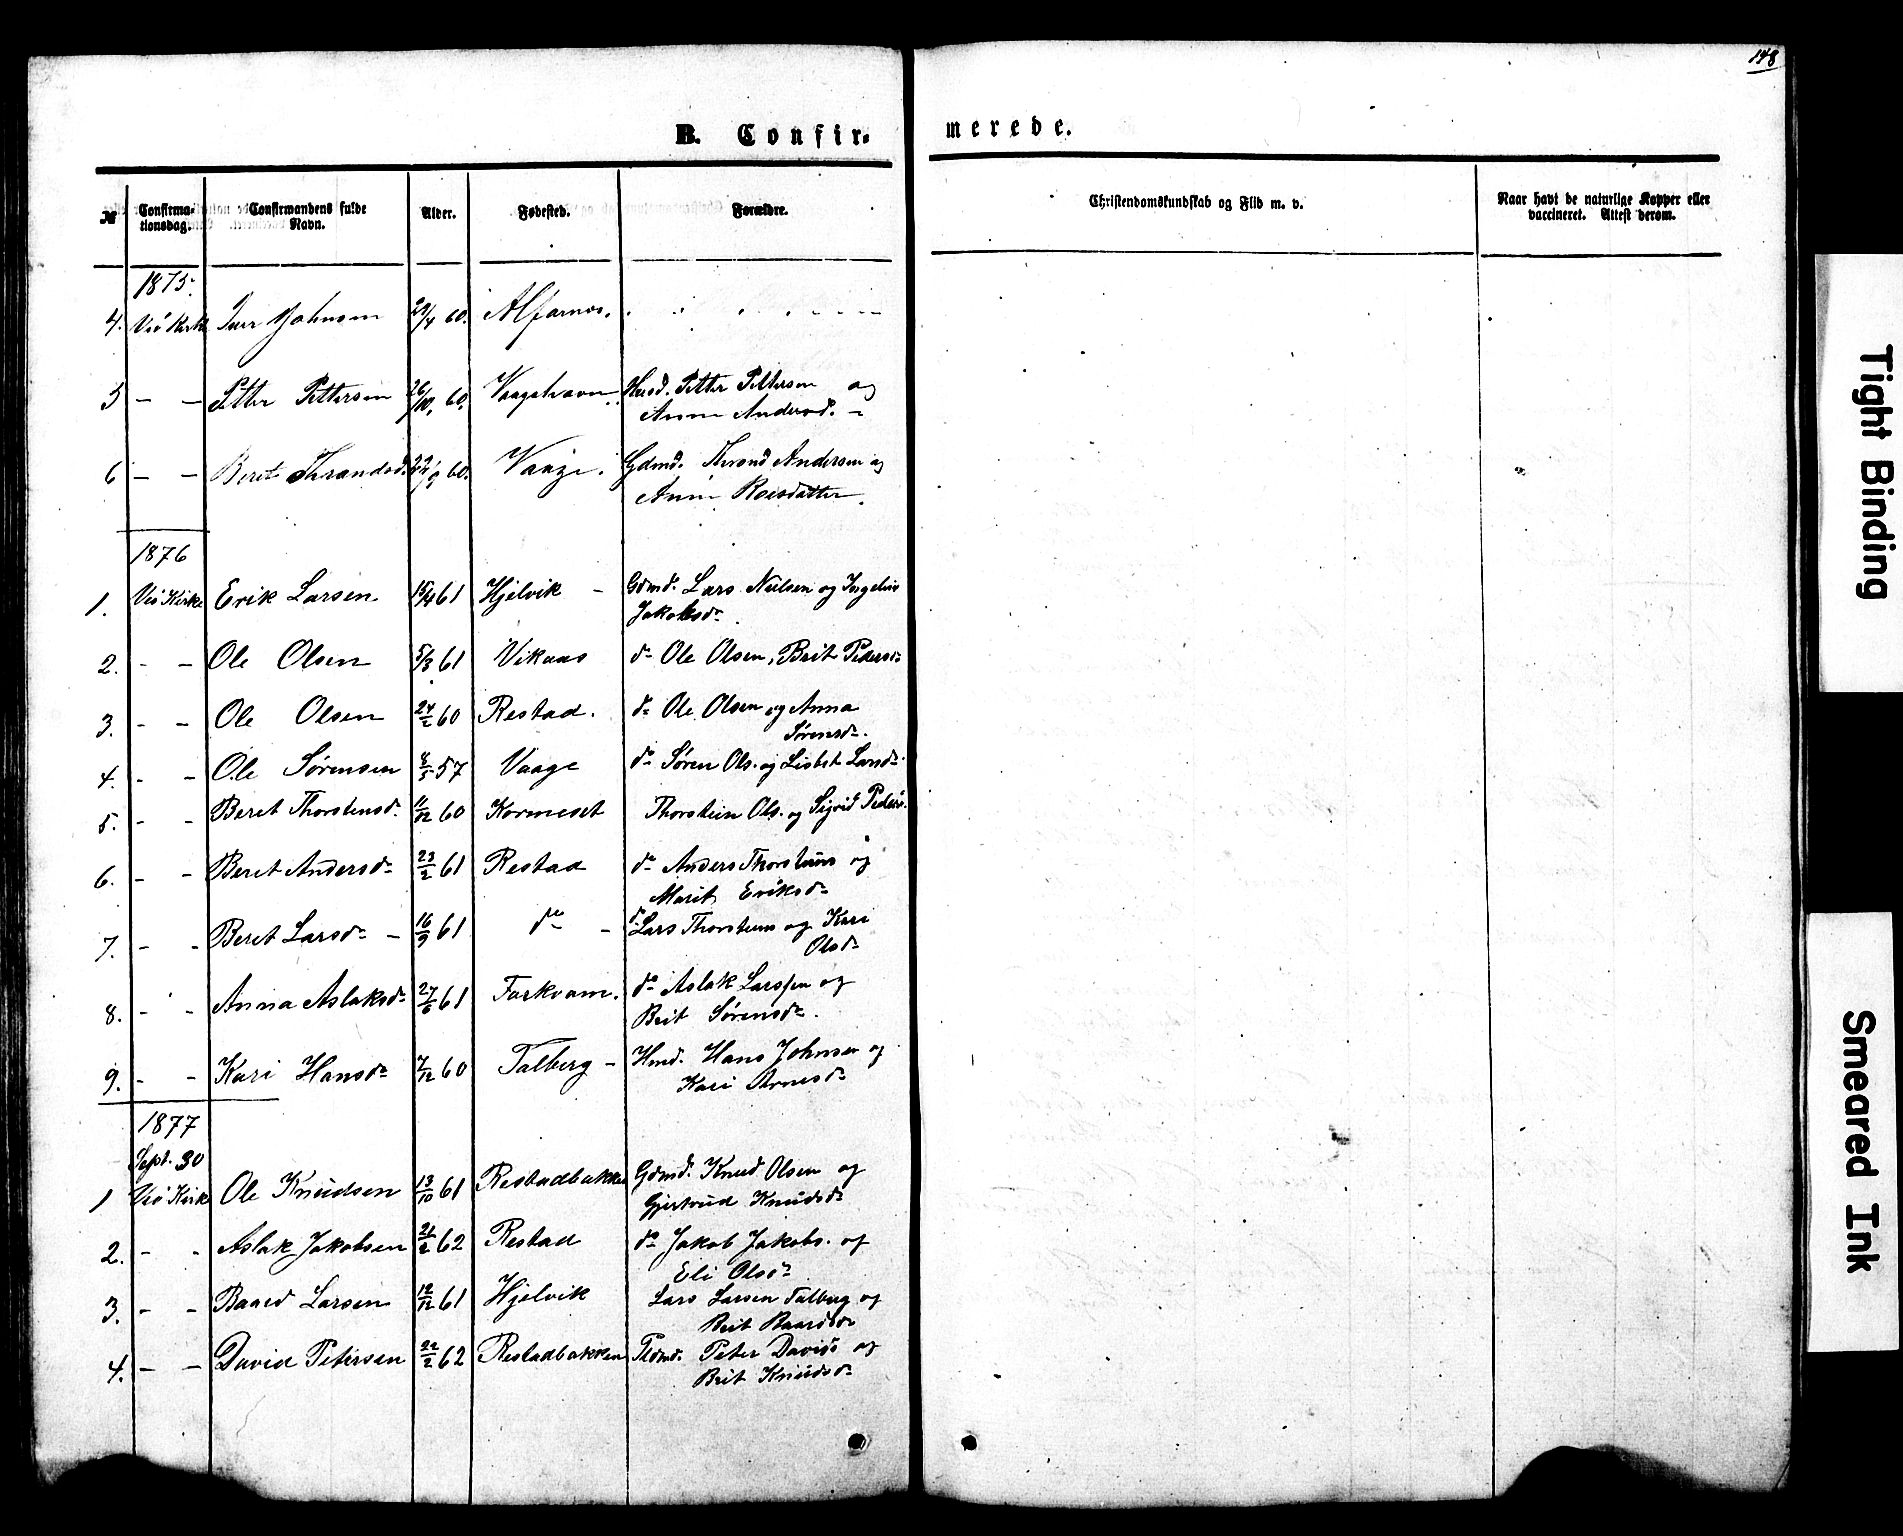 148
B. Confir- merede.
№ Confirma- Confirmandens fulde Alder. Fødested. Forældre. Christendomskundskab og Flid m. v. Naar havt de naturlige Kopper eller
tionsdag. Navn. vaccineret. Attest derom.
1875.
4. Veø Kirk Iver Johnsen 29/4 60. Alfarnes.
5 – – Petter Pettersen 26/10, 60. Vaagehavn Husd. Petter Pettersen og
Anne Andersd. –
6 – – Beret Thrandsd. 22/9 60. Vaage. Gdmd. Thrond Andersen og
Anne Roisdatter.
1876
1. Veø Kirke Erik Larsen 15/4 61 Hjelvik – Gdmd. Lars Nielsen og Ingeline
Jakobsdr.
2. – – Ole Olsen 5/3 61 Vikaas do Ole Olsen, Brit Pedersd
3. – – Ole Olsen 24/2 60 Restad. do Ole Olsen og Anna
Sørensdr.
4. – – Ole Sørensen 8/5 57 Vaage do Søren Ols. og Lisbet Larsdr
5. – – Beret Thorstensdr. 11/12 60 Kormeset Thorstein Ols. og Sigrid Peders.
6. – – Beret Andersdr 23/2 61 Restad do Anders Thorsteins og
Marit Eriksdr
7. – – Beret Larsdr – 16/9 61 do – do Lars Thorsteins og Kari
Olsdr
8. – – Anna Aslaksdr 27/6 61 Torkvam. do Aslak Larssen og
Brit Sørensdr.
9. – – Kari Hansdr 7/12 60 Talberg – Hmd. Hans Johnsen og
Kari Arnesdr
1877
Sept. 30
1 Veø Kirk Ole Knudsen 13/10 61 Restadbakken Gdmd. Knud Olsen og
Gjertrud Knudsdr
2. – – Aslak Jakobsen 21/2 62 Restad do Jakob Jakobs. og
Eli Olsdr
3. – – Baard Larsen 12/12 61 Hjelvik Lars Larsen Talberg og
Brit Baardsdr
4. – – David Petersen 22/2 62 Restadbakken Pldmd. Peter Davids og
Brit Knudsdr
Tight Binding
Smeared Ink